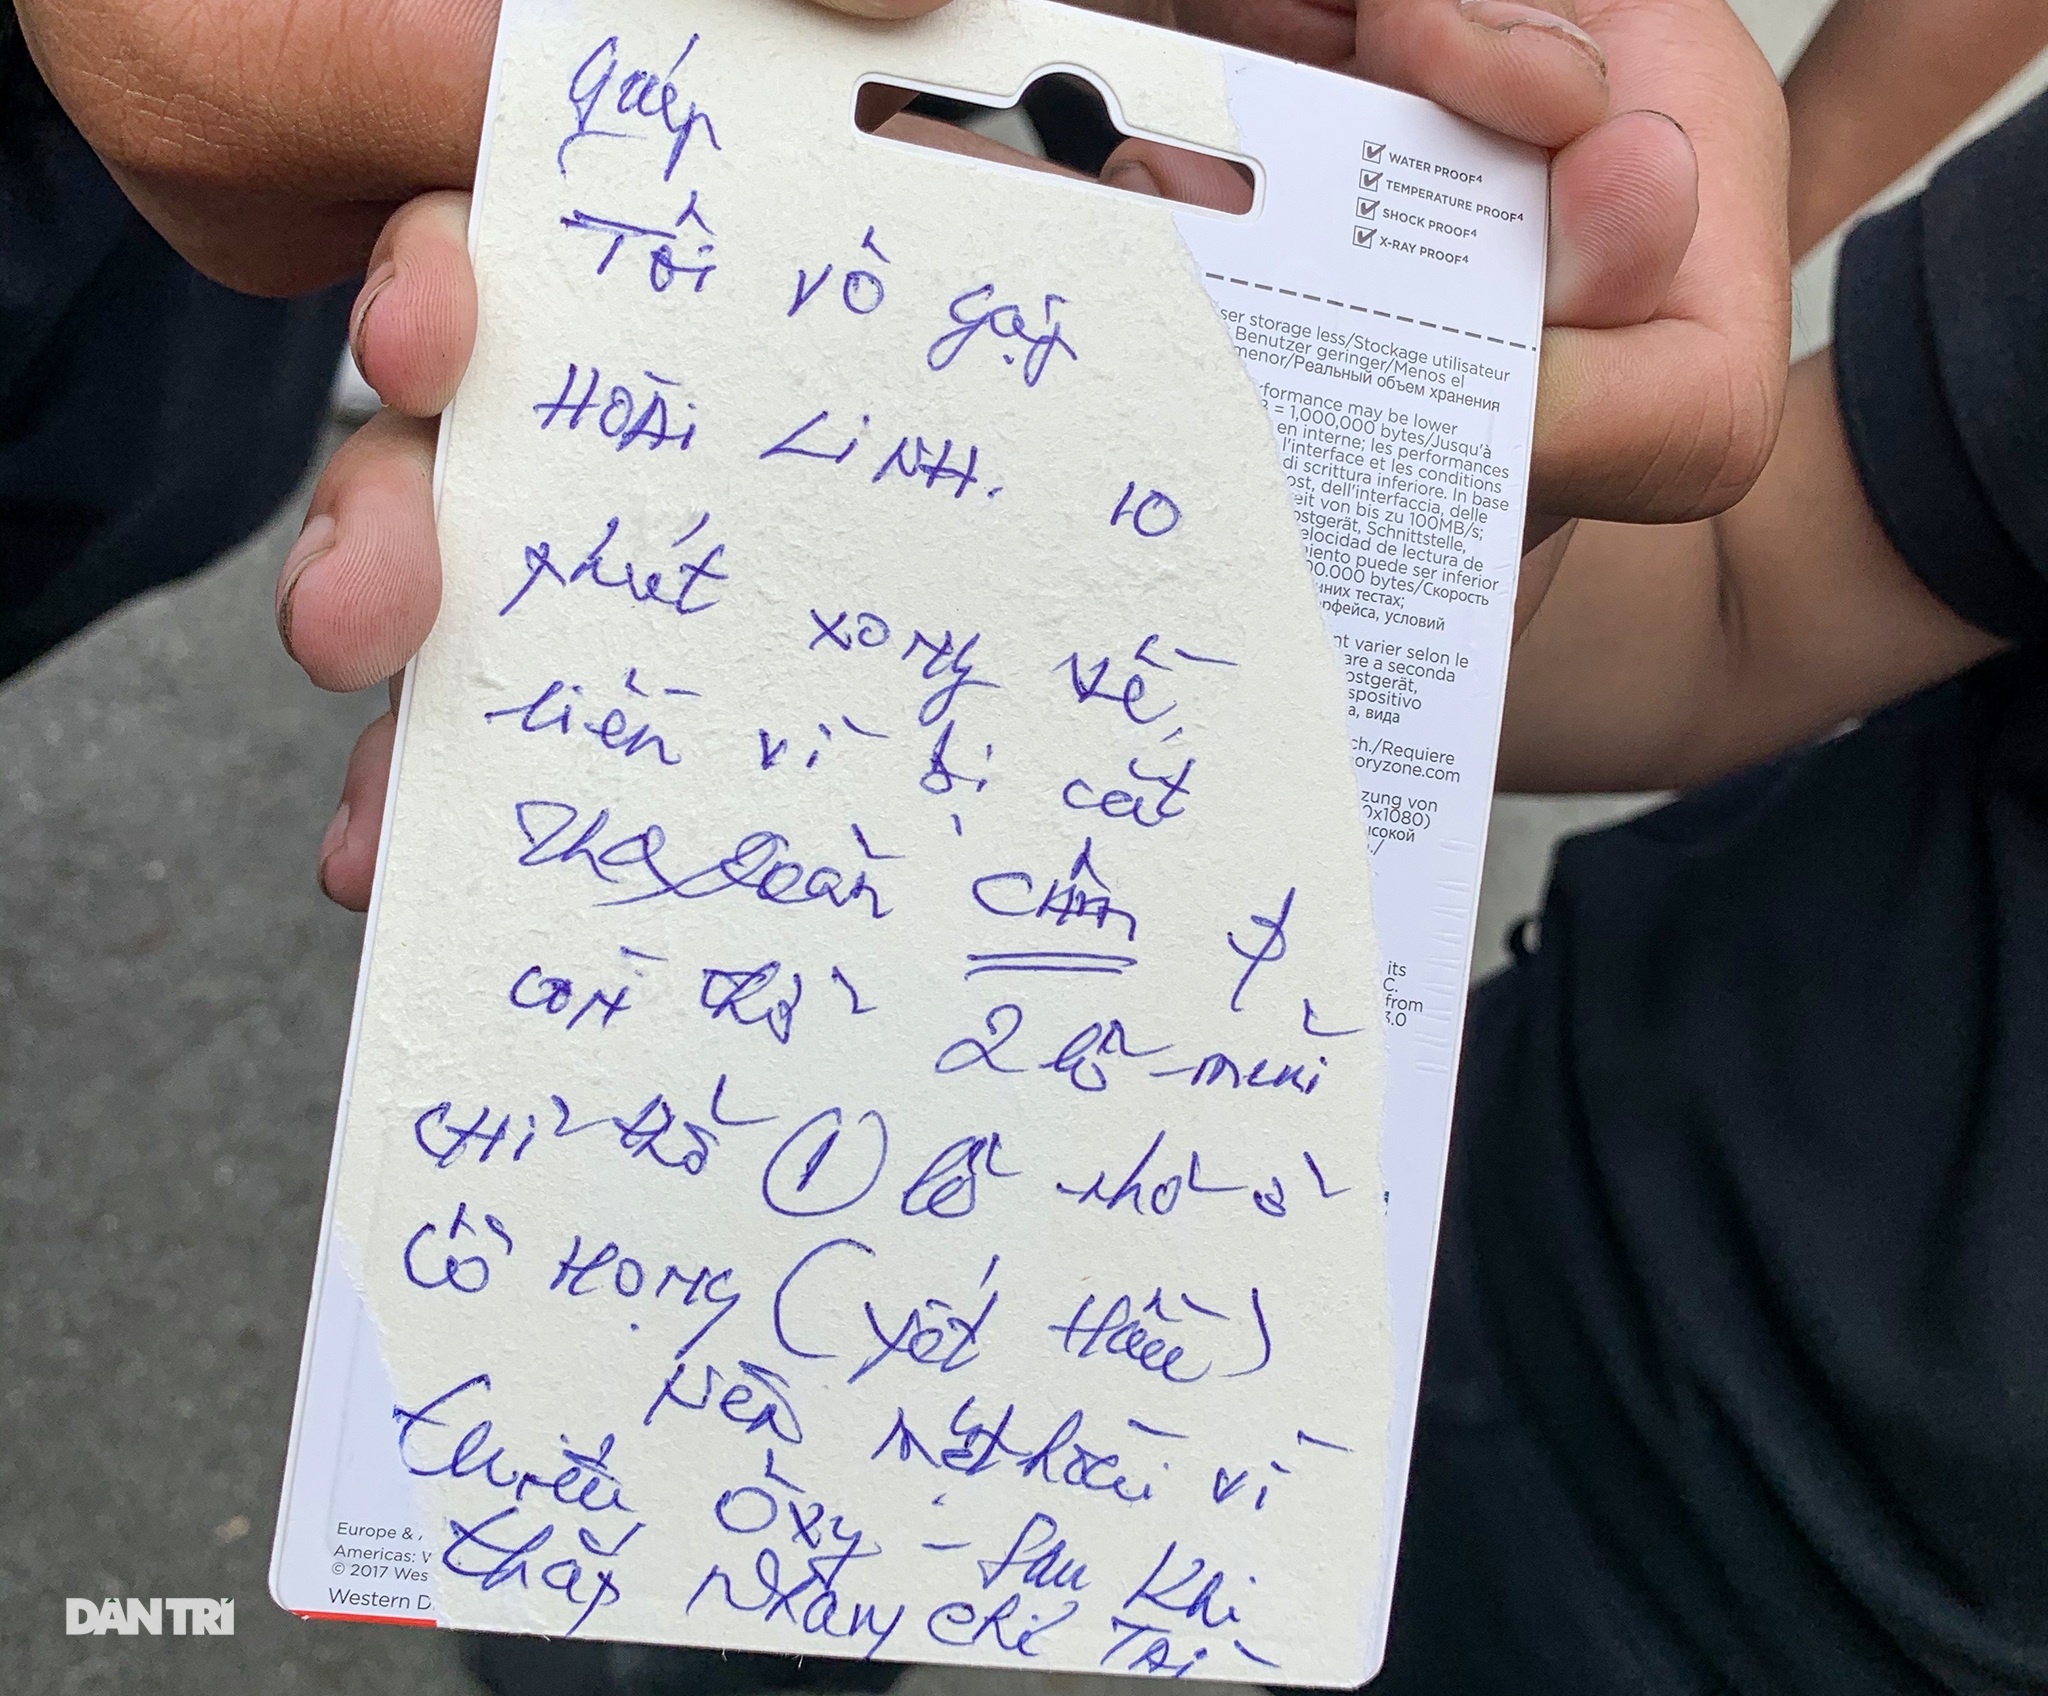 Gấp
Tôi vồ gậy
HOÀi LiNH. 10
phút xong về
liền vì bị cắt
CHÂN
còn thở 2 lỗ mũi
CHỈ thở ① lỗ nhỏ ở
Cổ Họng (yết Hầu)
Nên mệt hoài vì
thiếu Ôxy - Sau Khi
thắp Nhang chỉ TÀi
WATER PROOF⁴
TEMPERATURE PROOF⁴
SHOCK PROOF⁴
X-RAY PROOF⁴
ser storage less/Stockage utilisateur
Benutzer geringer/Menos el
menor/Реальный объем хранения
rformance may be lower
= 1,000,000 bytes/Jusqu'à
en interne; les performances
l'interface et les conditions
di scrittura inferiore. In base
ost, dell'interfaccia, delle
eit von bis zu 100MB/s;
ostgerät, Schnittstelle,
elocidad de lectura de
iento puede ser inferior
00.000 bytes/Скорость
них тестах;
рфейса, условий
nt varier selon le
are a seconda
ostgerät,
spositivo
а, вида
ch./Requiere
oryzone.com
zung von
0x1080)
ысокой
its
C.
from
3.0
Europe &
Americas: W
© 2017 Wes
Western D
DÂN TRÍ